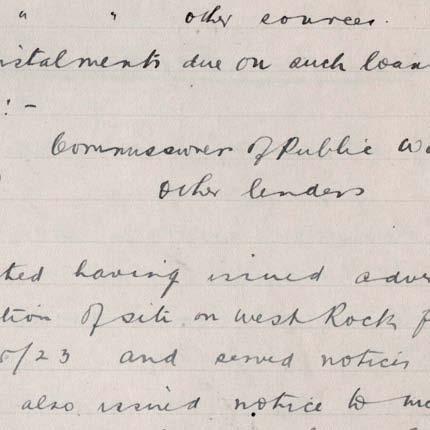 " " other sources.
nstalments due on such loan
: -
Commissioner of Public Wo
Other lenders
ted having issued adver
tion of site on West Rock f
5/23 and served notices
also issued notice to me